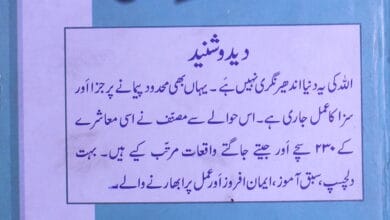 دید و شنید
اللہ کی یہ دنیا اندھیر نگری نہیں ہَے ۔ یہاں بھی محدود پیمانے پر جزا اَور
سزا کا عمل جاری ہے۔ اس حوالے سے مصنّف نے اسی معاشرے
کے ۲۳۰ سچے اَور جیتے جاگتے واقعات مرتّب کیے ہیں۔ بہت
دلچسپ، سبق آموز، ایمان افروز اَور عمل پر ابھارنے والے۔